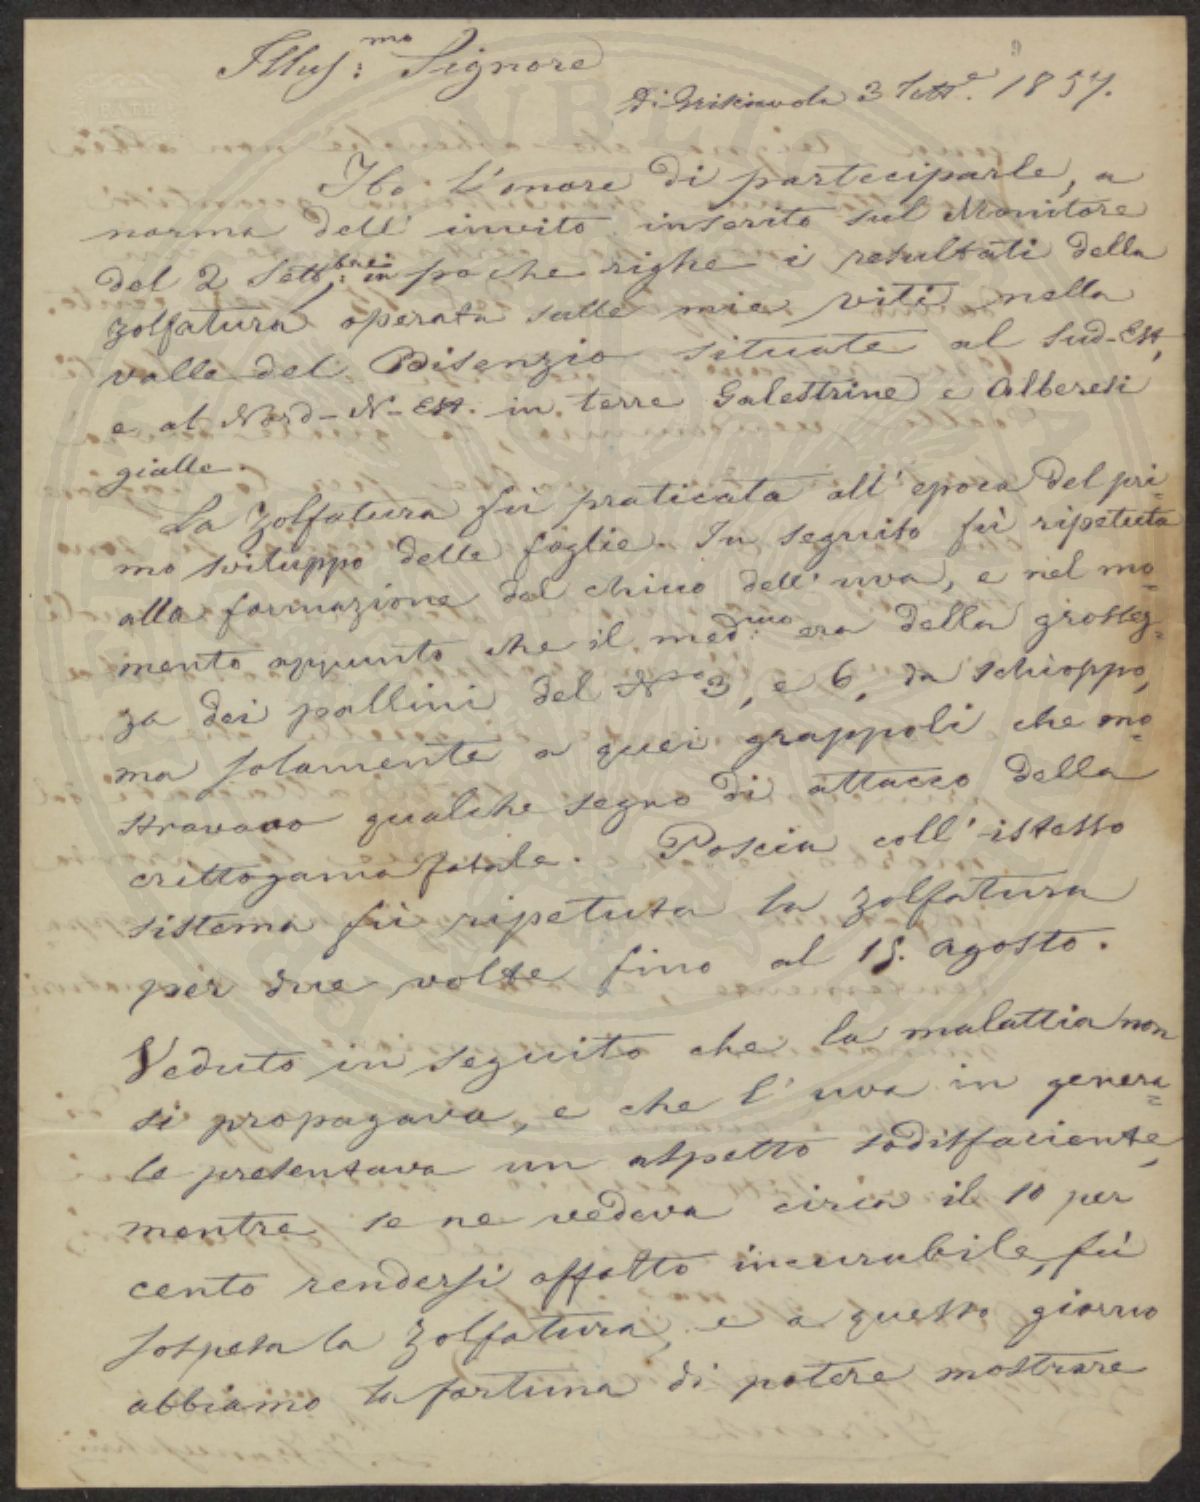 Illus:mo Signore
Di 3 Sett.e 1857.
Ho l'onore di parteciparle, a
norma dell' invito inserito sul Monitore
del 2 Settbre: in poche righe i resultati della
zolfatura operata sulle mie viti nella
valle del Bisenzio situate al Sud-Est,
e al Nord-N-Est. in terre Galestrine e Alberesi
gialle.
La Zolfatura fù praticata all' epoca del pri=
mo sviluppo delle foglie. In seguito fù ripetuta
alla formazione del chicco dell' uva, e nel mo=
mento appunto che il medmo: era della grossez=
za dei pallini del No 3, e 6, da schioppo,
ma solamente a quei grappoli che mo=
stravano qualche segno di attacco della
crittogama fatale. Poscia coll' istesso
sistema fù ripetuta la zolfatura
per due volte fino al 15. Agosto.
Veduto in seguito che la malattia non
si propagava, e che l' uva in genera=
le presentava un aspetto sodisfaciente,
mentre se ne vedeva circa il 10 per
cento rendersi affatto incurabile, fù
sospesa la Zolfatura, e a questo giorno
abbiamo la fortuna di potere mostrare